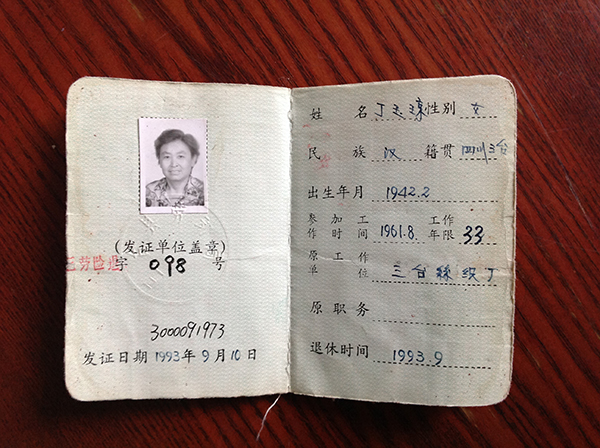 (发证单位盖章)
三劳险退字 098 号
3000091973
发证日期 1993 年 9 月 10 日
姓 名 丁 性别 女
民 族 汉 籍贯 四川三台
出生年月 1942.2
参加工作时间 1961.8. 工作年限 33
原工作单位 三台丝纺厂
原职务
退休时间 1993.9